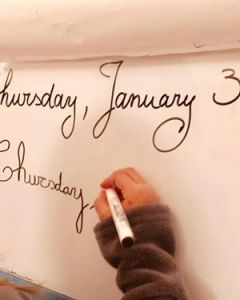 Thursday, January 3
Thursday,